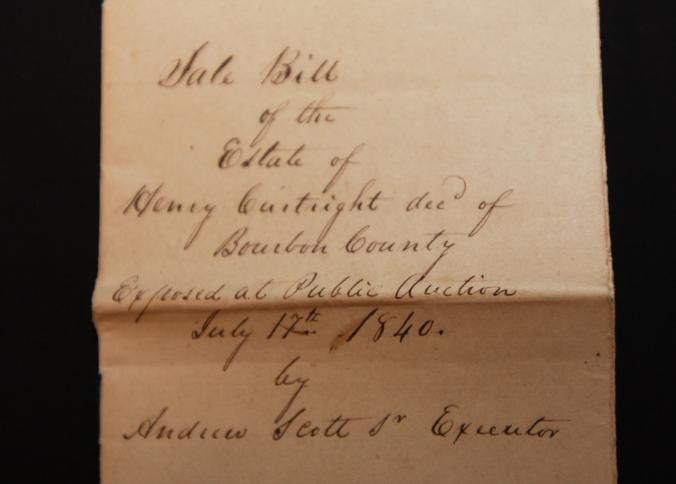 Sale Bill
of the
Estate of
Henry Curtright decd of
Bourbon County
Exposed at Public Auction
July 17th 1840.
by
Andrew Scott Sr Executor